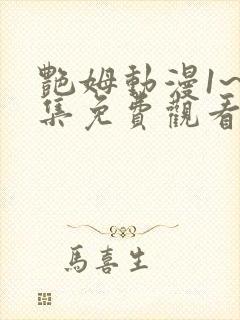 艷姆動漫1~
集免費觀看
馬喜生